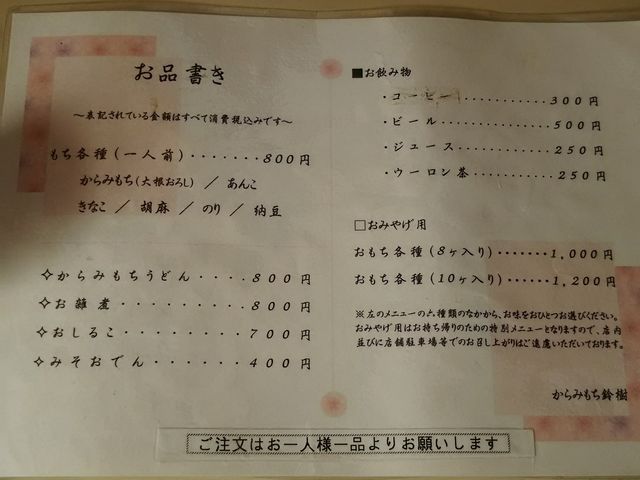 お品書き
～表記されている金額はすべて消費税込みです～
もち各種(一人前)・・・・・・・800円
からみもち(大根おろし) ／ あんこ
きなこ ／ 胡麻 ／ のり ／ 納豆
✧からみもちうどん・・・・800円
✧お雑煮・・・・・・・・・800円
✧おしるこ・・・・・・・・700円
✧みそおでん・・・・・・・400円
■お飲み物
・コーヒー...........300円
・ビール............500円
・ジュース...........250円
・ウーロン茶..........250円
□おみやげ用
おもち各種(8ヶ入り)・・・・・・・1,000円
おもち各種(10ヶ入り)・・・・・・1,200円
※左のメニューの六種類のなかから、お味をおひとつお選びください。
おみやげ用はお持ち帰りのための特別メニューとなりますので、店内
並びに店舗駐車場等でのお召し上がりはご遠慮いただいております。
からみもち鈴樹
ご注文はお一人様一品よりお願いします